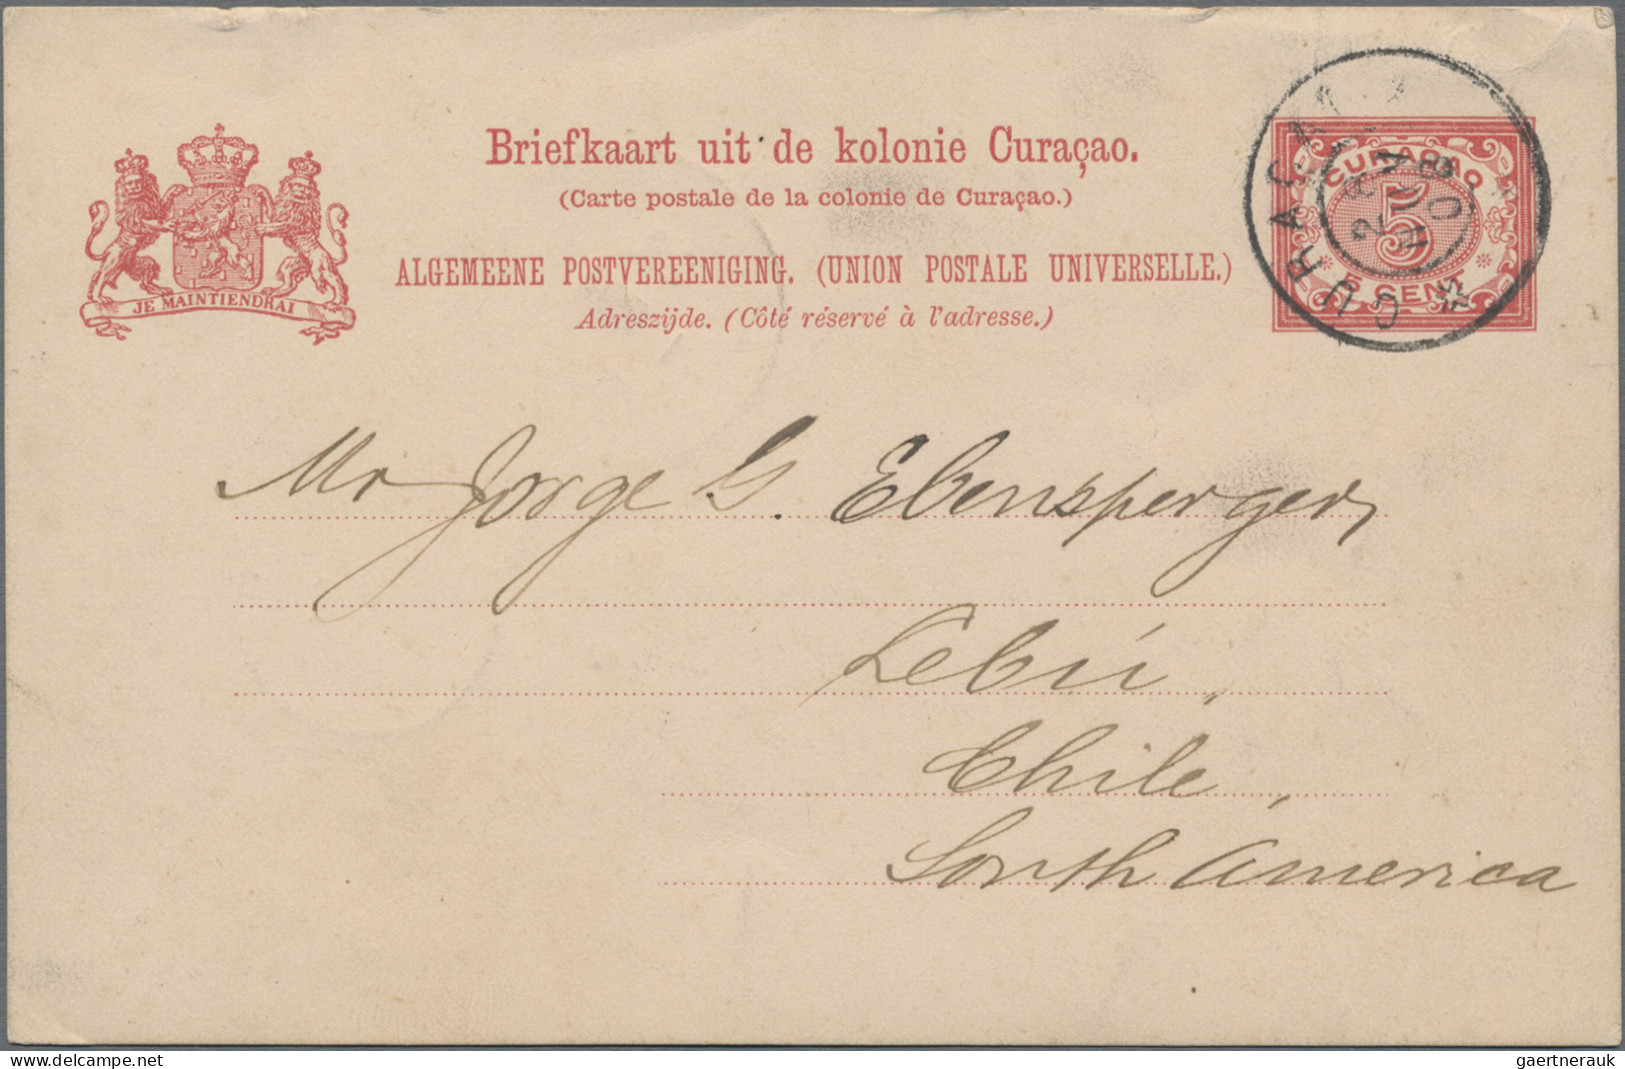 Briefkaart uit de kolonie Curaçao.
(Carte postale de la colonie de Curaçao.)
ALGEMEENE POSTVEREENIGING. (UNION POSTALE UNIVERSELLE.)
Adreszijde. (Côté réservé à l'adresse.)
JE MAINTIENDRAI
CURAÇAO
5
5 CENT
CURAÇAO
Mr Jorge G. Ebensperger,
Lebú,
Chile,
South America
www.delcampe.net
gaertnerauk